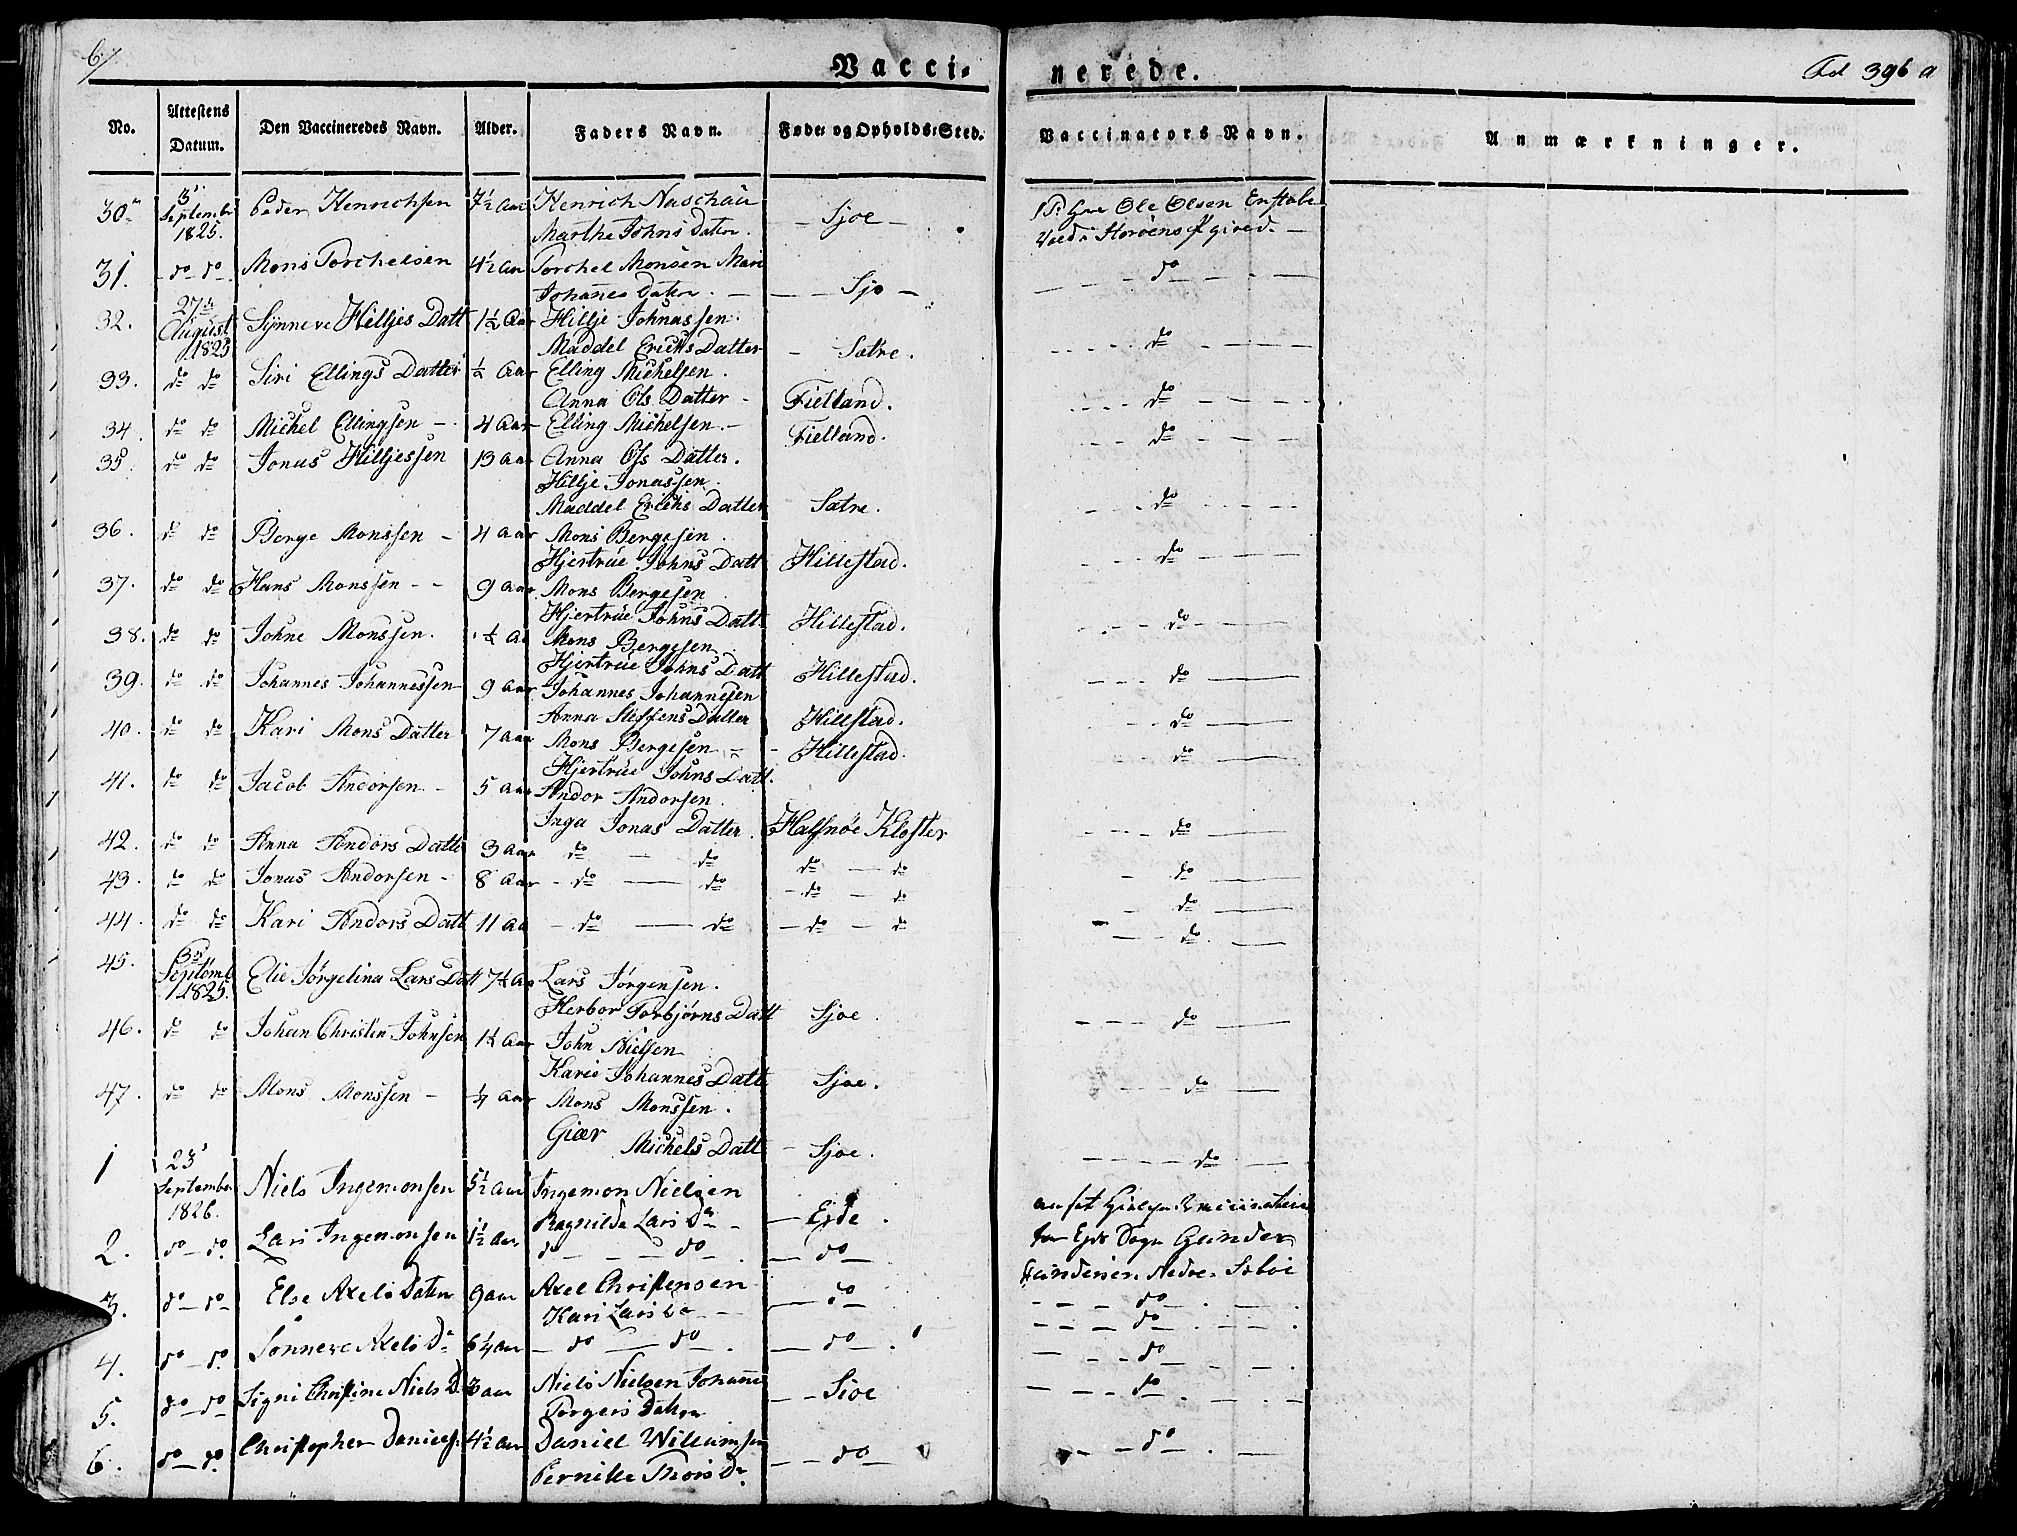 6/
Vacci-
nerede.
Fol 396 a
No.
Attestens Datum.
Den Vaccineredes Navn.
Alder.
Faders Navn.
Føde- og Opholds-Sted.
Vaccinators Navn.
Anmærkninger.
30 3' Septembr 1825. Peder Henrichsen 7½ Aar Henrich Naschau
Marthe Johns Datter. — Sjoe — Ole Olsen
31. do do Mons Torchelsen 4½ Aar Torchel Monsen Mari
Johanes Datter. — Sjo — do
32. 27de August 1825 Synneve Hilljes Datt 1½ Aar Hillje Johnassen.
Maddel Erichs Datter - Satre. do
33. do do Siri Ellings Datter ½ Aar Elling Michelsen.
Anna Ols Datter - Fielland. do
34. do do Michel Ellingsen - 4 Aar Elling Michelsen. - Fielland. do
35. do do Jonas Hilljessen 13 Aar Anna Ols Datter.
Hillje Jonassen.
Maddel Erichs Datter Satre. do
36. do do Berge Monssen - 4 Aar Mons Bergesen.
Hjertrue Johns Datt Hillestad. do
37. do do Hans Monssen - - 9 Aar Mons Bergesen
Hjertrue Johns Datt Hillestad. do
38. do do Johne Monssen. Mons Bergesen
Hjertrue Johns Datt Hillestad. do
39. do do Johannes Johannessen 9 Aar Johannes Johannesen
Anna Steffens Datter Hillestad. do
40. do do Kari Mons Datter 7 Aar Mons Bergesen - Hillestad. do
Hjertrue Johns Datt.
41. do do Jacob Andorsen - 5 Aar Andor Andorsen.
Inga Jonas Datter. Halsnöe Kloster do
42. do do Anna Andors Datte 3 Aar do — do do — do do
43. do do Jonas Andorsen - 8 Aar - do — do - do — do do
44. do do Kari Andors Datt 11 Aa - do — do - do — do do
45. Septemb 1825. Elie Jörgelina Lars Datt Lars Jörgensen.
Herbor Torbjörns Datt Sjoe. do
46. do do Johan Christin Johnsen John Nielsen
Karie Johannes Datt Sjoe. do
47. do do Mons Monssen - ¼ Aar Mons Monssen.
Giær Michels Datt - Sjoe. do
1 23' September 1826. Niels Ingemonsen 5½ Aar Ingemon Nielsen
Ragnilde Lars Dr - — Eide.
2. do — do Lars Ingemonsen 1½ Aar do — — do — do — for Sogn Gunder
3. do — do Else Axels Datter 9 aar Axel Christensen
Kari Lars Dr — do — do
do
4. do — do Sönneve Axels Dr 6¼ Aar — do — do — do — do
5. do — do Signi Christine Niels D. aar Niels Nielsen Johanne
Torgers Datter — Sioe do
6. do — do Christopher Daniels. 4½ Aar Daniel Willumsen
Pernille Thors Dr — do — do